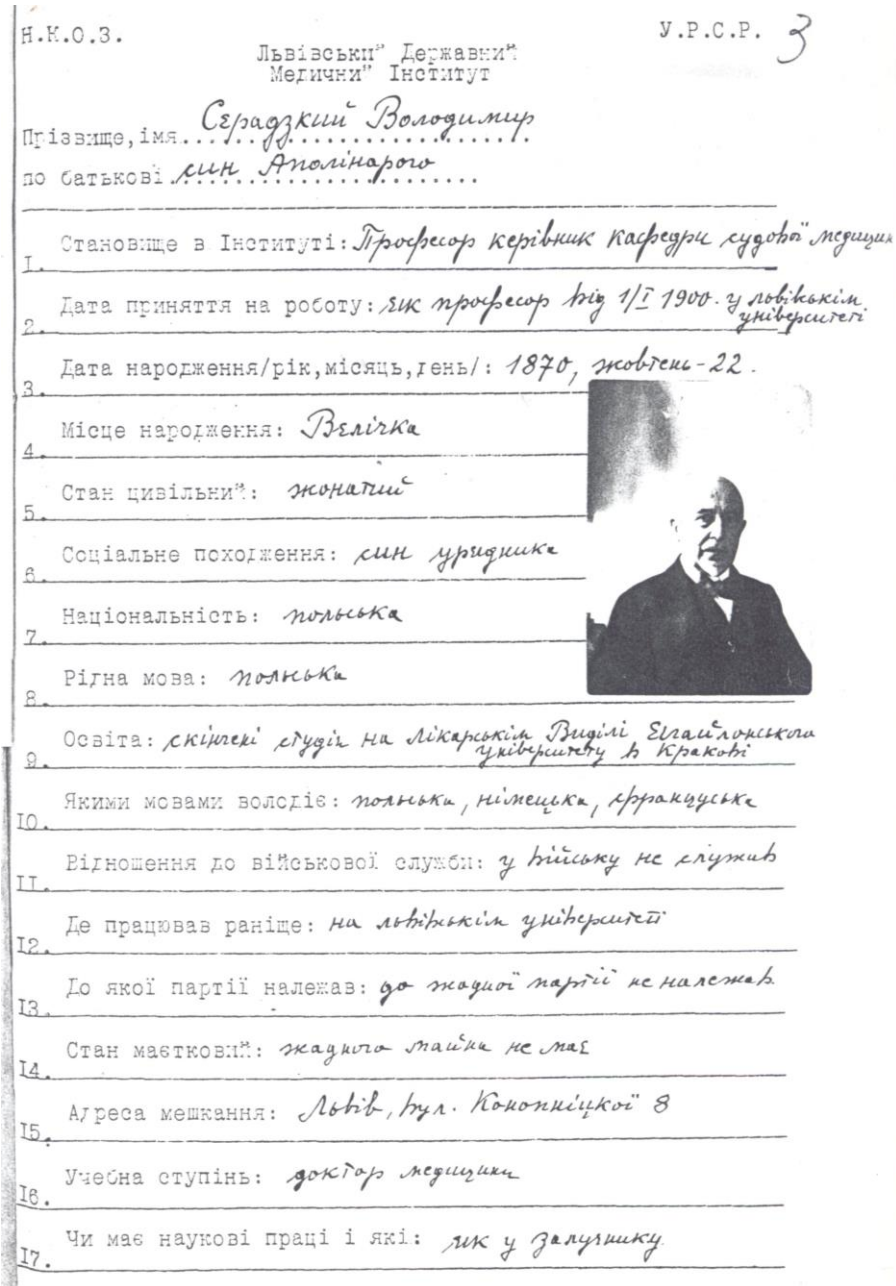 Н.К.О.З. У.Р.С.Р. 3
Львівський Державний
Медичний Інститут
Прізвище,імя..Сєрадзкий Володимир
по батькові.син Аполінарого
1. Становище в Інституті: Професор керівник кафедри судової медицини
2. Дата приняття на роботу: як професор від 1/I 1900. у львівськім
університеті
3. Дата народження/рік,місяць,день/: 1870, жовтень-22.
4. Місце народження: Вєлічка
5. Стан цивільний: жонатий
6. Соціальне походження: син урядника
7. Національність: польська
8. Рідна мова: польська
9. Освіта: скінчені студії на Лікарськім Виділі Єгайлонського
університету в Кракові
10. Якими мовами володіє: польська, німецька, французська
11. Відношення до військової служби: у війську не служив
12. Де працював раніще: на львівськім університеті
13. До якої партії належав: до жадної партії не належав.
14. Стан маєтковий: жадного майна не має
15. Адреса мешкання: Львів, вул. Конопніцкої 8
16. Учебна ступінь: доктор медицини
17. Чи має наукові праці і які: як у залучнику